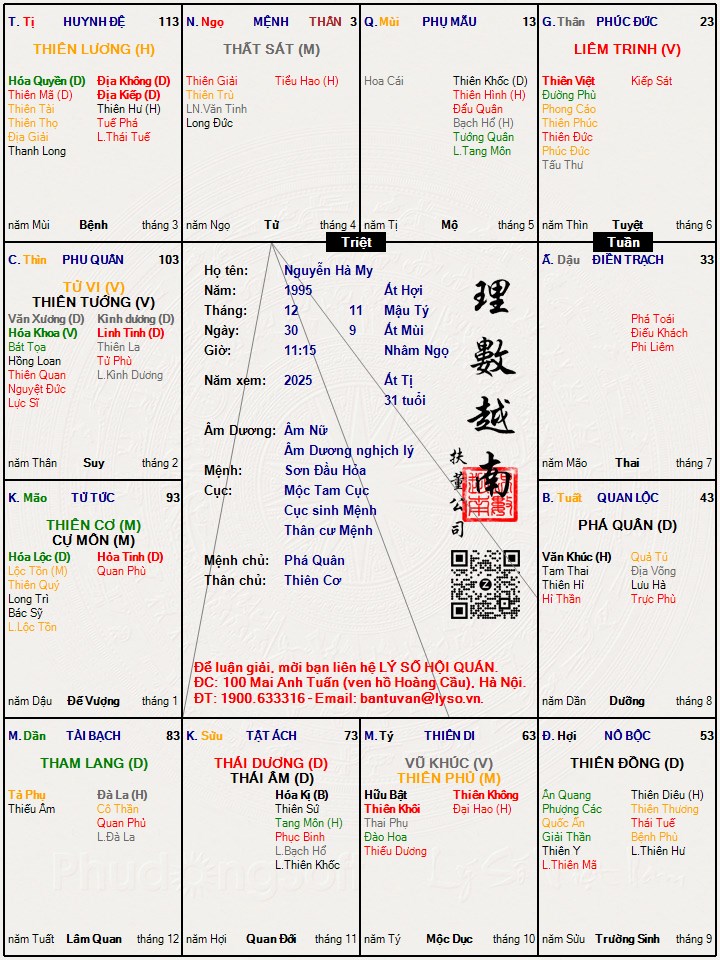 T. Tị HUYNH ĐỆ 113
THIÊN LƯƠNG (H)
Hóa Quyền (D) Địa Không (D)
Thiên Mã (D) Địa Kiếp (D)
Thiên Tài Thiên Hư (H)
Thiên Thọ Tuế Phá
Địa Giải L.Thái Tuế
Thanh Long
năm Mùi Bệnh tháng 3
N. Ngọ MỆNH THÂN 3
THẤT SÁT (M)
Thiên Giải Tiểu Hao (H)
Thiên Trù
LN.Văn Tinh
Long Đức
năm Ngọ Tử tháng 4
Q. Mùi PHỤ MẪU 13
Hoa Cái Thiên Khốc (D)
Thiên Hình (H)
Đẩu Quân
Bạch Hổ (H)
Tướng Quân
L.Tang Môn
năm Tị Mộ tháng 5
G. Thân PHÚC ĐỨC 23
LIÊM TRINH (V)
Thiên Việt Kiếp Sát
Đường Phù
Phong Cáo
Thiên Phúc
Thiên Đức
Phúc Đức
Tấu Thư
năm Thìn Tuyệt tháng 6
Triệt
Tuần
C. Thìn PHU QUÂN 103
TỬ VI (V)
THIÊN TƯỚNG (V)
Văn Xương (D) Kình dương (D)
Hóa Khoa (V) Linh Tinh (D)
Bát Tọa Thiên La
Hồng Loan Tử Phù
Thiên Quan L.Kình Dương
Nguyệt Đức
Lực Sĩ
năm Thân Suy tháng 2
Họ tên: Nguyễn Hà My
Năm: 1995 Ất Hợi
Tháng: 12 11 Mậu Tý
Ngày: 30 9 Ất Mùi
Giờ: 11:15 Nhâm Ngọ
Năm xem: 2025 Ất Tị
31 tuổi
Âm Dương: Âm Nữ
Âm Dương nghịch lý
Mệnh: Sơn Đầu Hỏa
Cục: Mộc Tam Cục
Cục sinh Mệnh
Thân cư Mệnh
Mệnh chủ: Phá Quân
Thân chủ: Thiên Cơ
理數越南
扶董公司
Z
Để luận giải, mời bạn liên hệ LÝ SỐ HỘI QUÁN.
ĐC: 100 Mai Anh Tuấn (ven hồ Hoàng Cầu), Hà Nội.
ĐT: 1900.633316 - Email: bantuvan@lyso.vn.
Ấ. Dậu ĐIỀN TRẠCH 33
Phá Toái
Điếu Khách
Phi Liêm
năm Mão Thai tháng 7
K. Mão TỬ TỨC 93
THIÊN CƠ (M)
CỰ MÔN (M)
Hóa Lộc (D) Hỏa Tinh (D)
Lộc Tồn (M) Quan Phù
Thiên Quý
Long Trì
Bác Sỹ
L.Lộc Tồn
năm Dậu Đế Vượng tháng 1
B. Tuất QUAN LỘC 43
PHÁ QUÂN (D)
Văn Khúc (H) Quả Tú
Tam Thai Địa Võng
Thiên Hỉ Lưu Hà
Hỉ Thần Trực Phù
năm Dần Dưỡng tháng 8
M. Dần TÀI BẠCH 83
THAM LANG (D)
Tả Phụ Đà La (H)
Thiếu Âm Cô Thần
Quan Phủ
L.Đà La
năm Tuất Lâm Quan tháng 12
K. Sửu TẬT ÁCH 73
THÁI DƯƠNG (D)
THÁI ÂM (D)
Hóa Kị (B)
Thiên Sứ
Tang Môn (H)
Phục Binh
L.Bạch Hổ
L.Thiên Khốc
năm Hợi Quan Đới tháng 11
M. Tý THIÊN DI 63
VŨ KHÚC (V)
THIÊN PHỦ (M)
Hữu Bật Thiên Không
Thiên Khôi Đại Hao (H)
Thai Phụ
Đào Hoa
Thiếu Dương
năm Tý Mộc Dục tháng 10
Đ. Hợi NÔ BỘC 53
THIÊN ĐỒNG (D)
Ân Quang Thiên Diêu (H)
Phượng Các Thiên Thương
Quốc Ấn Thái Tuế
Giải Thần Bệnh Phù
Thiên Y L.Thiên Hư
L.Thiên Mã
năm Sửu Trường Sinh tháng 9